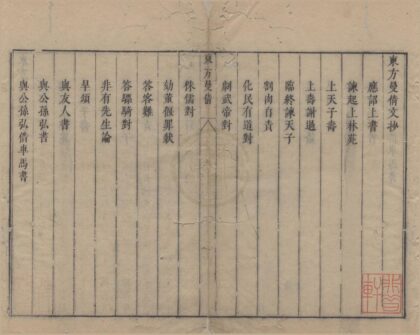 東方曼倩文抄
應詔上書
諫起上林苑
上天子壽
上壽謝過
臨終諫天子
割肉自責
化民有道對
劇武帝對
東方曼倩
侏儒對
劾董偃罪狀
答客難
答驃騎對
非有先生論
旱頌
與友人書
與公孫弘書
與公孫弘借車馬書